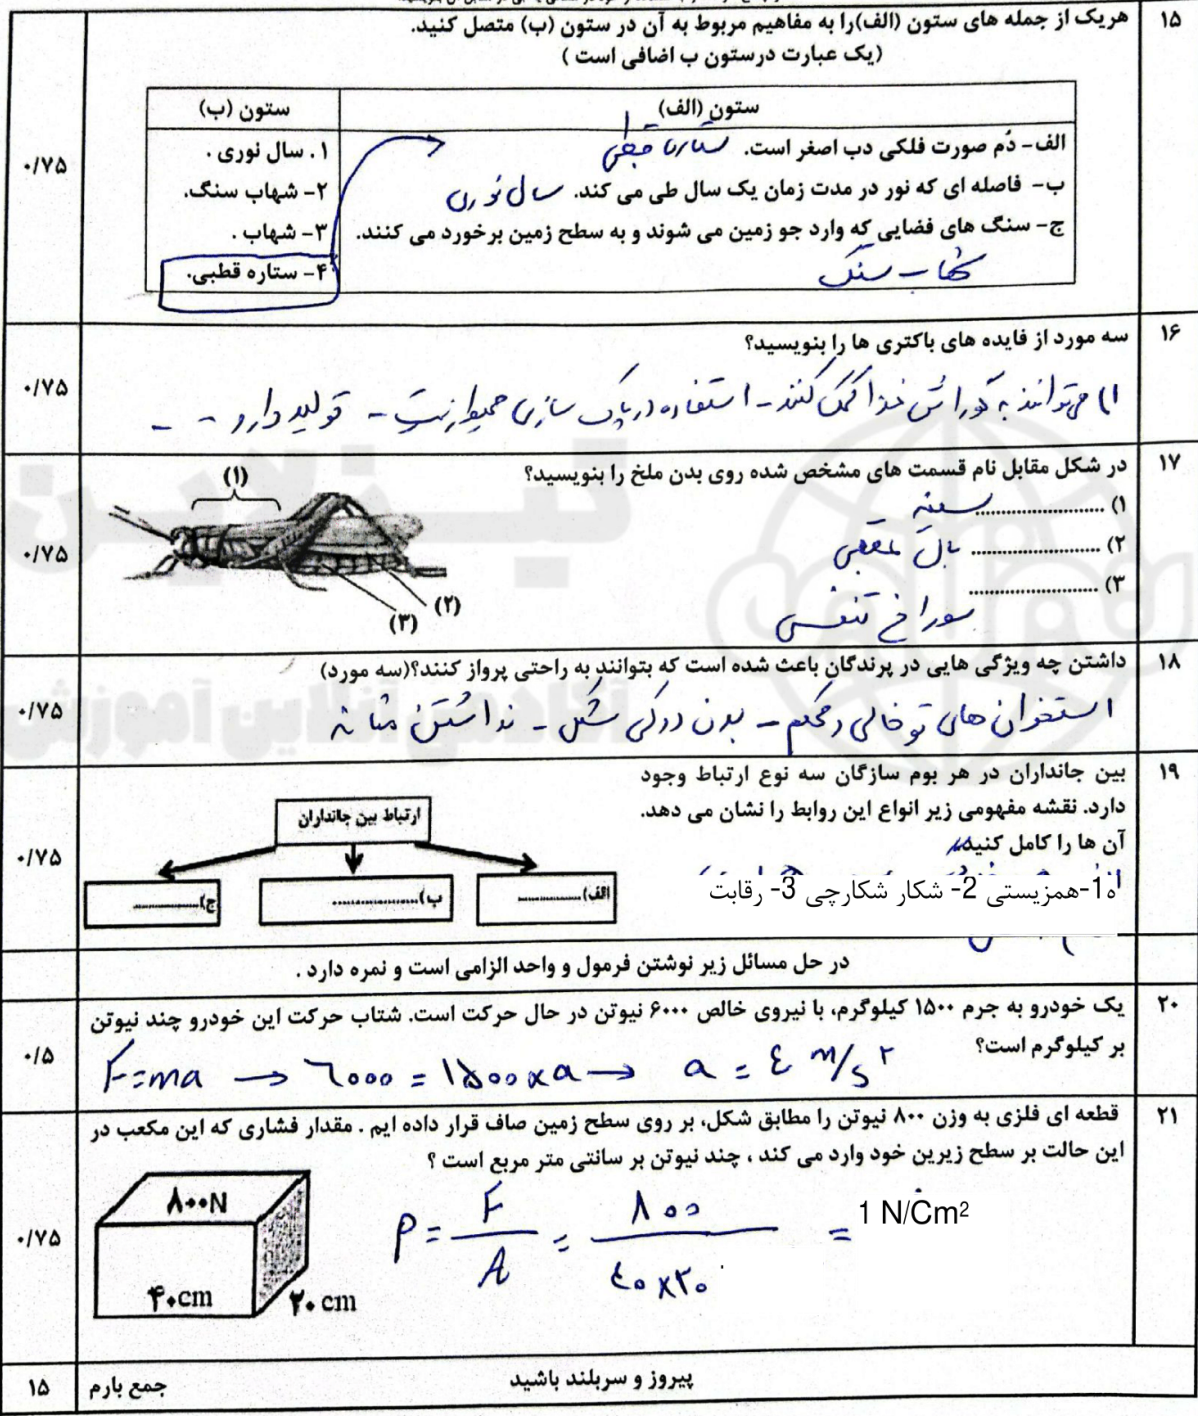 ۱۵
هریک از جمله های ستون (الف)را به مفاهیم مربوط به آن در ستون (ب) متصل کنید.
(یک عبارت درستون ب اضافی است )
۰/۷۵
ستون (الف)
ستون (ب)
الف- دُم صورت فلکی دب اصغر است. ستاره قطبی
۱. سال نوری .
ب- فاصله ای که نور در مدت زمان یک سال طی می کند. سال نوری
۲- شهاب سنگ.
ج- سنگ های فضایی که وارد جو زمین می شوند و به سطح زمین برخورد می کنند.
۳- شهاب .
شهاب سنگ
۴- ستاره قطبی.
۱۶
سه مورد از فایده های باکتری ها را بنویسید؟
۰/۷۵
۱) می توانند به گوارش غذا کمک کنند - استفاده در پاک سازی محیط زیست - تولید دارو - -
۱۷
در شکل مقابل نام قسمت های مشخص شده روی بدن ملخ را بنویسید؟
۰/۷۵
۱) .................... سینه
۲) .................... بال عقبی
۳) ....................
سوراخ تنفسی
(۱)
(۲)
(۳)
تیزلاین
آکادمی آنلاین آموزش
۱۸
داشتن چه ویژگی هایی در پرندگان باعث شده است که بتوانند به راحتی پرواز کنند؟(سه مورد)
۰/۷۵
استخوان های تو خالی و محکم - بدن دوکی شکل - نداشتن مثانه
۱۹
بین جانداران در هر بوم سازگان سه نوع ارتباط وجود
دارد. نقشه مفهومی زیر انواع این روابط را نشان می دهد.
آن ها را کامل کنید.
۰/۷۵
ه1-همزیستی 2- شکار شکارچی 3- رقابت
ارتباط بین جانداران
الف)................
ب)....................
ج)................
در حل مسائل زیر نوشتن فرمول و واحد الزامی است و نمره دارد .
۲۰
یک خودرو به جرم ۱۵۰۰ کیلوگرم، با نیروی خالص ۶۰۰۰ نیوتن در حال حرکت است. شتاب حرکت این خودرو چند نیوتن
بر کیلوگرم است؟
۰/۵
F=ma → ٦٥٥٥ = ١٥٥٥×a → a = ٤ m/s²
۲۱
قطعه ای فلزی به وزن ۸۰۰ نیوتن را مطابق شکل، بر روی سطح زمین صاف قرار داده ایم . مقدار فشاری که این مکعب در
این حالت بر سطح زیرین خود وارد می کند ، چند نیوتن بر سانتی متر مربع است ؟
۰/۷۵
P = F/A = ۸۰۰/٤۰×۲۰ = 1 N/Cm²
۸۰۰N
۴۰cm
۲۰cm
پیروز و سربلند باشید
جمع بارم
۱۵